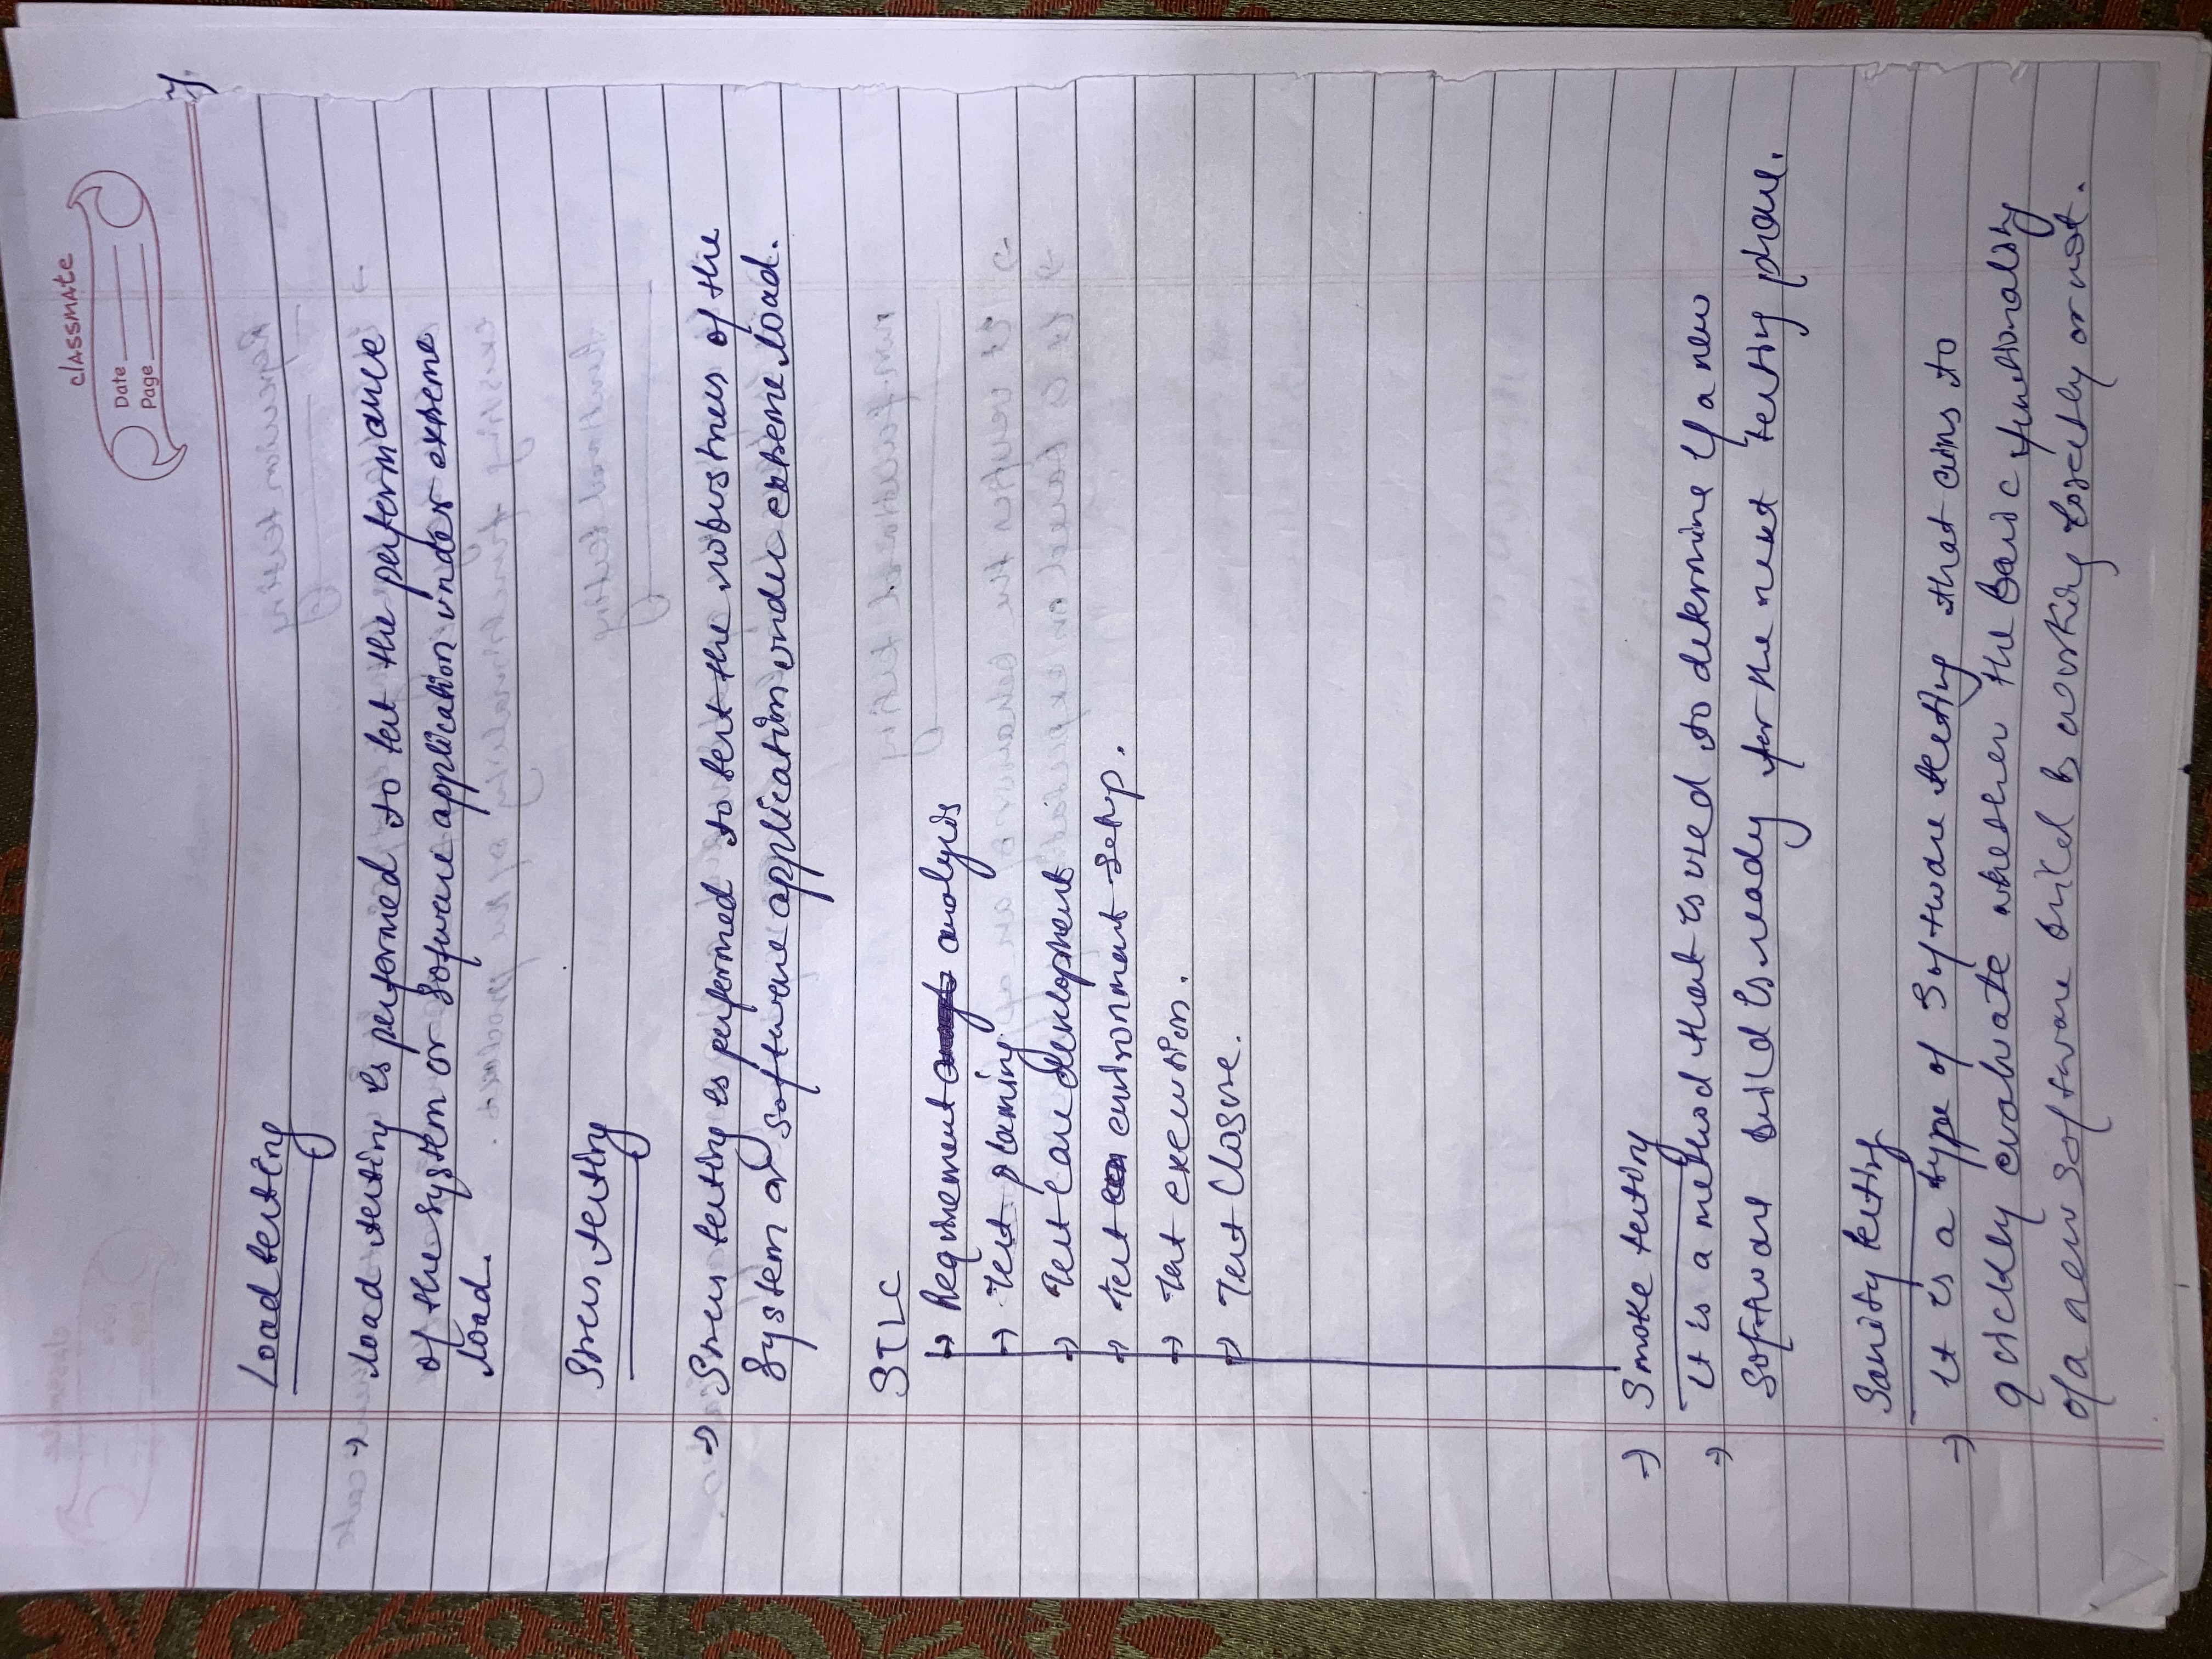 classmate
Date
Page
Load testing
→ load testing is performed to test the performance
of the system or sofware application under extreme
load.
Stress testing
→ Stress testing is performed to test the robustness of the
System or software application under extreme load.
STLC
→ Requirement analysis
→ Test planning
→ Test Case development
→ Test environment setup.
→ Test execution.
→ Test Closure.
→ Smoke testing
→ It is a method that is used to determine if a new
software build is ready for the next testing phase.
Sanity testing
→ It is a type of Software testing that aims to
quickly evaluate whether the basic functionality
of a new software build is working corectly or not.